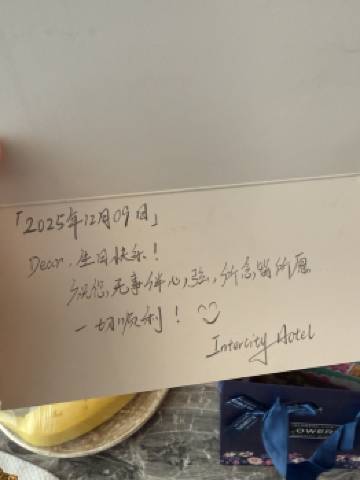 「2025年12月09日」
Dear,生日快乐!
祝您,无事伴心弦,所念皆所愿
一切顺利!
Intercity Hotel
OWER